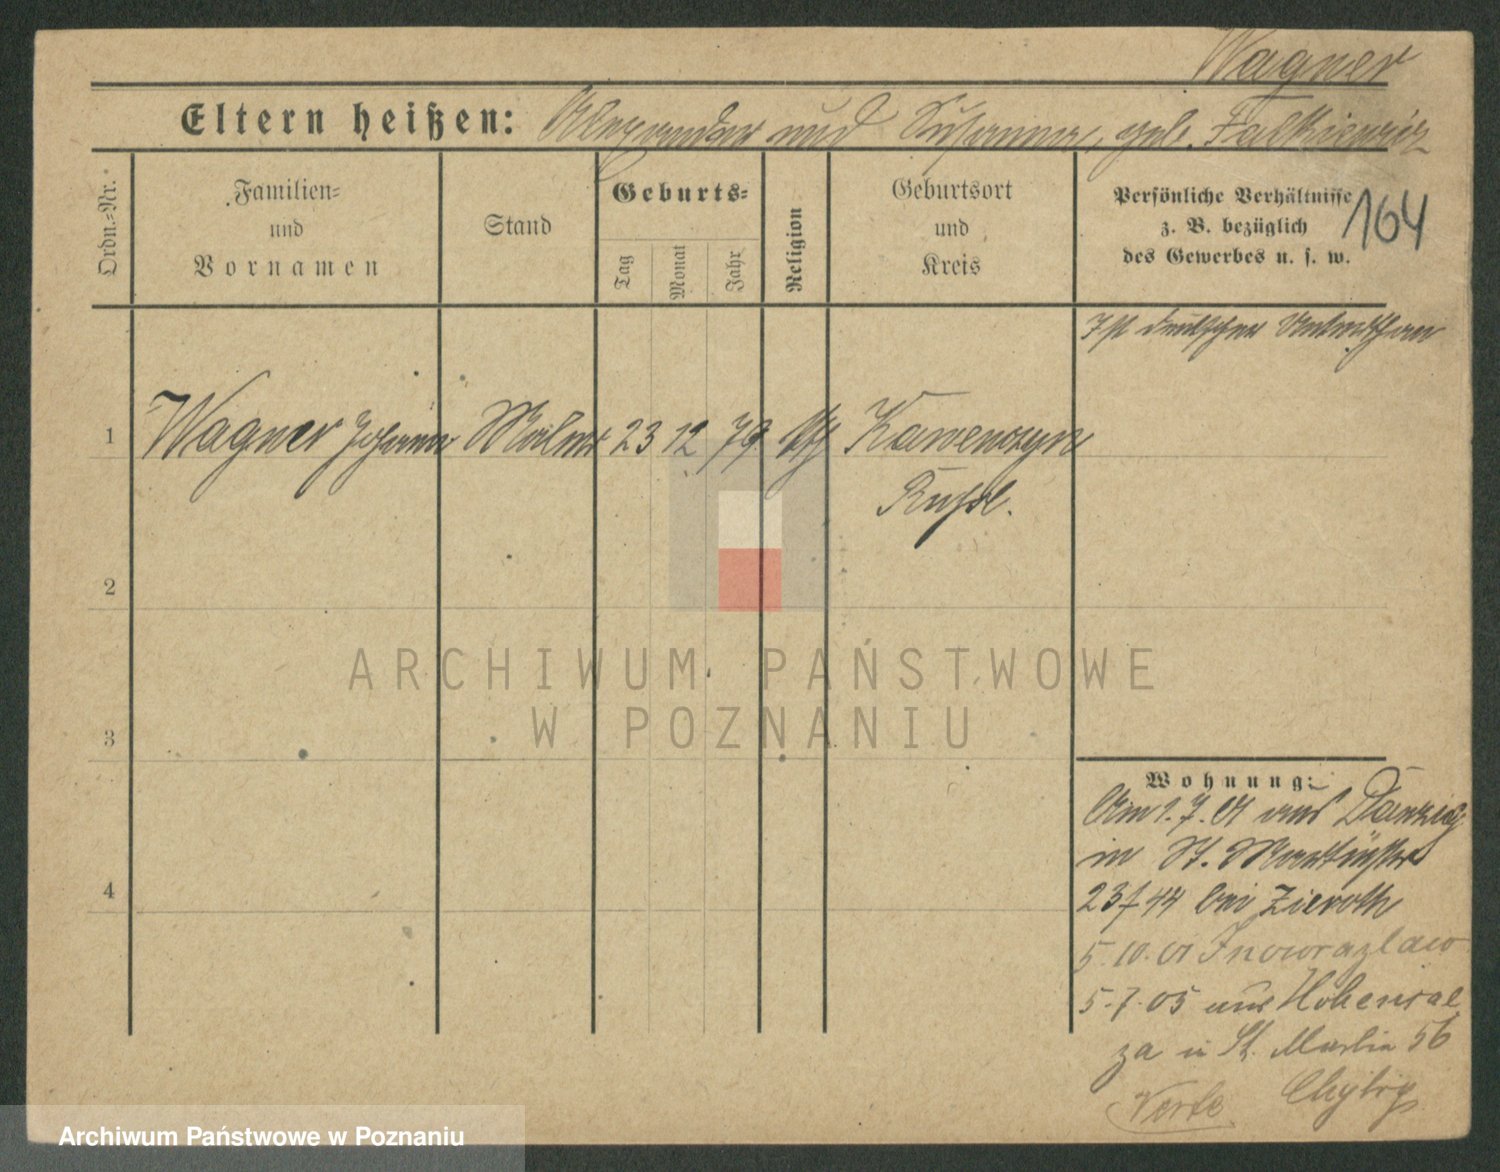 Wagner
Eltern heißen: Alexander und Susanna, geb. Falkiewicz
Ordn.-Nr.
Familien-
und
Vornamen
Stand
Geburts-
Tag
Monat
Jahr
Religion
Geburtsort
und
Kreis
Persönliche Verhältnisse
z. B. bezüglich
des Gewerbes u. s. w.
164
Ist deutscher Unterthan
1 Wagner Johann Maler 23 12 79 Kamenczyn
Russl.
2
3
4
ARCHIWUM PAŃSTWOWE
W POZNANIU
Wohnung:
Am 1.7.01 aus Danzig
in St. Martinstr
23 f 44 bei Zieroth
5.10.01 Inowrazlaw
5.7.05 aus Hohensal
za in St. Martin 56
Archiwum Państwowe w Poznaniu